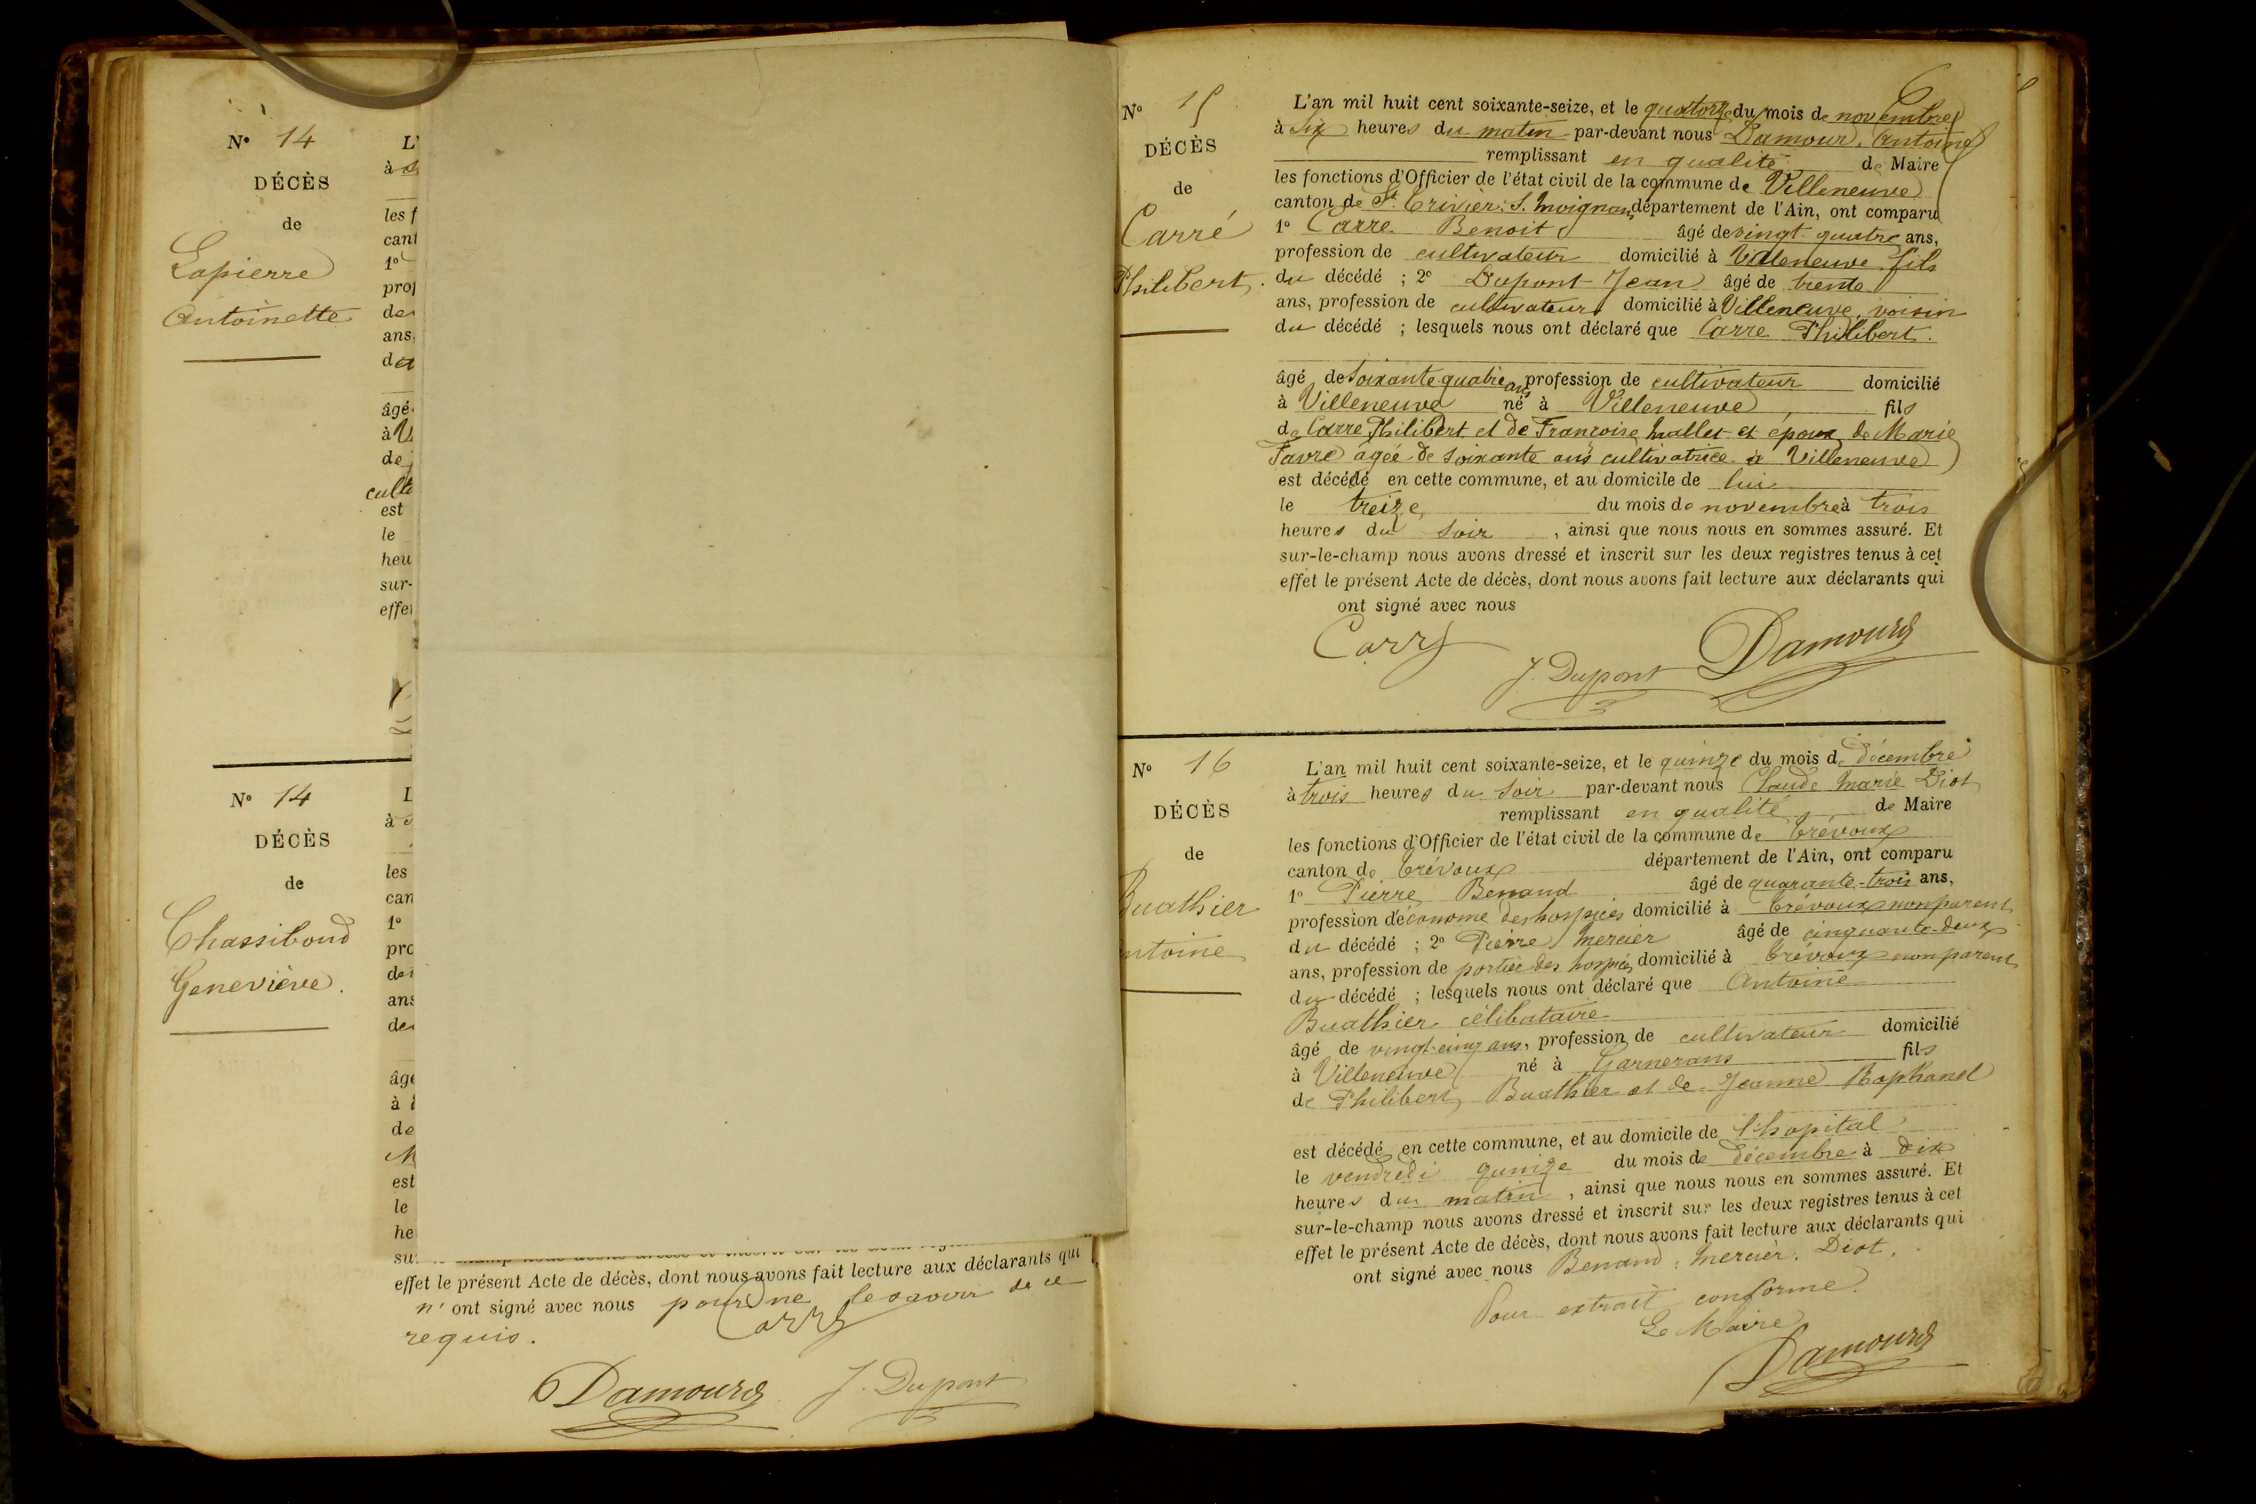 N° 14
DÉCÈS
de
Lapierre
Antoinette
L'
à
les f
cant
1°
prof
de
ans,
du
âgé
à V
de
culti
est
le
heu
sur-
effet
N° 14
DÉCÈS
de
Chassiboud
Geneviève.
L
à
les
can
1°
pro
de
ans
de
âgé
à
de
M
est
le
he
su
effet le présent Acte de décès, dont nous avons fait lecture aux déclarants qui
n' ont signé avec nous pour ne le savoir de ce
requis. Carré
Damour J. Dupont
N° 15
DÉCÈS
de
Carré
Philibert.
L'an mil huit cent soixante-seize, et le quatorze du mois de novembre
à six heures du matin par-devant nous Damour Antoine
remplissant en qualité de Maire
les fonctions d'Officier de l'état civil de la commune de Villeneuve
canton de St Trivier s. Moignans département de l'Ain, ont comparu
1° Carré Benoit âgé de vingt quatre ans,
profession de cultivateur domicilié à Villeneuve fils
du décédé ; 2° Dupont Jean âgé de trente
ans, profession de cultivateur domicilié à Villeneuve, voisin
du décédé ; lesquels nous ont déclaré que Carré Philibert.
âgé de soixante quatre ans profession de cultivateur domicilié
à Villeneuve né à Villeneuve fils
de Carré Philibert et de Françoise Mallet et époux de Marie
Favre agée de soixante ans cultivatrice à Villeneuve
est décédé en cette commune, et au domicile de lui
le treize du mois de novembre à trois
heures du soir , ainsi que nous nous en sommes assuré. Et
sur-le-champ nous avons dressé et inscrit sur les deux registres tenus à cet
effet le présent Acte de décès, dont nous avons fait lecture aux déclarants qui
ont signé avec nous
Carré
J. Dupont Damour
N° 16
DÉCÈS
de
Buathier
ntoine
L'an mil huit cent soixante-seize, et le quinze du mois de décembre
à trois heures du soir par-devant nous Claude Marie Diot
remplissant en qualité de Maire
les fonctions d'Officier de l'état civil de la commune de Trévoux
canton de Trévoux département de l'Ain, ont comparu
1° Pierre Benand âgé de quarante-trois ans,
profession d'économe des hospices domicilié à Trévoux non parent
du décédé ; 2° Pierre Mercier âgé de cinquante-deux
ans, profession de portier des hospices domicilié à Trévoux non parent
du décédé ; lesquels nous ont déclaré que Antoine
Buathier célibataire
âgé de vingt-cinq ans, profession de cultivateur domicilié
à Villeneuve né à Garnerans fils
de Philibert Buathier et de Jeanne Raphanel
est décédé en cette commune, et au domicile de l'hopital
le vendredi quinze du mois de décembre à dix
heures du matin , ainsi que nous nous en sommes assuré. Et
sur-le-champ nous avons dressé et inscrit sur les deux registres tenus à cet
effet le présent Acte de décès, dont nous avons fait lecture aux déclarants qui
ont signé avec nous Benand, Mercier, Diot.
Pour extrait conforme.
Le Maire
Damour